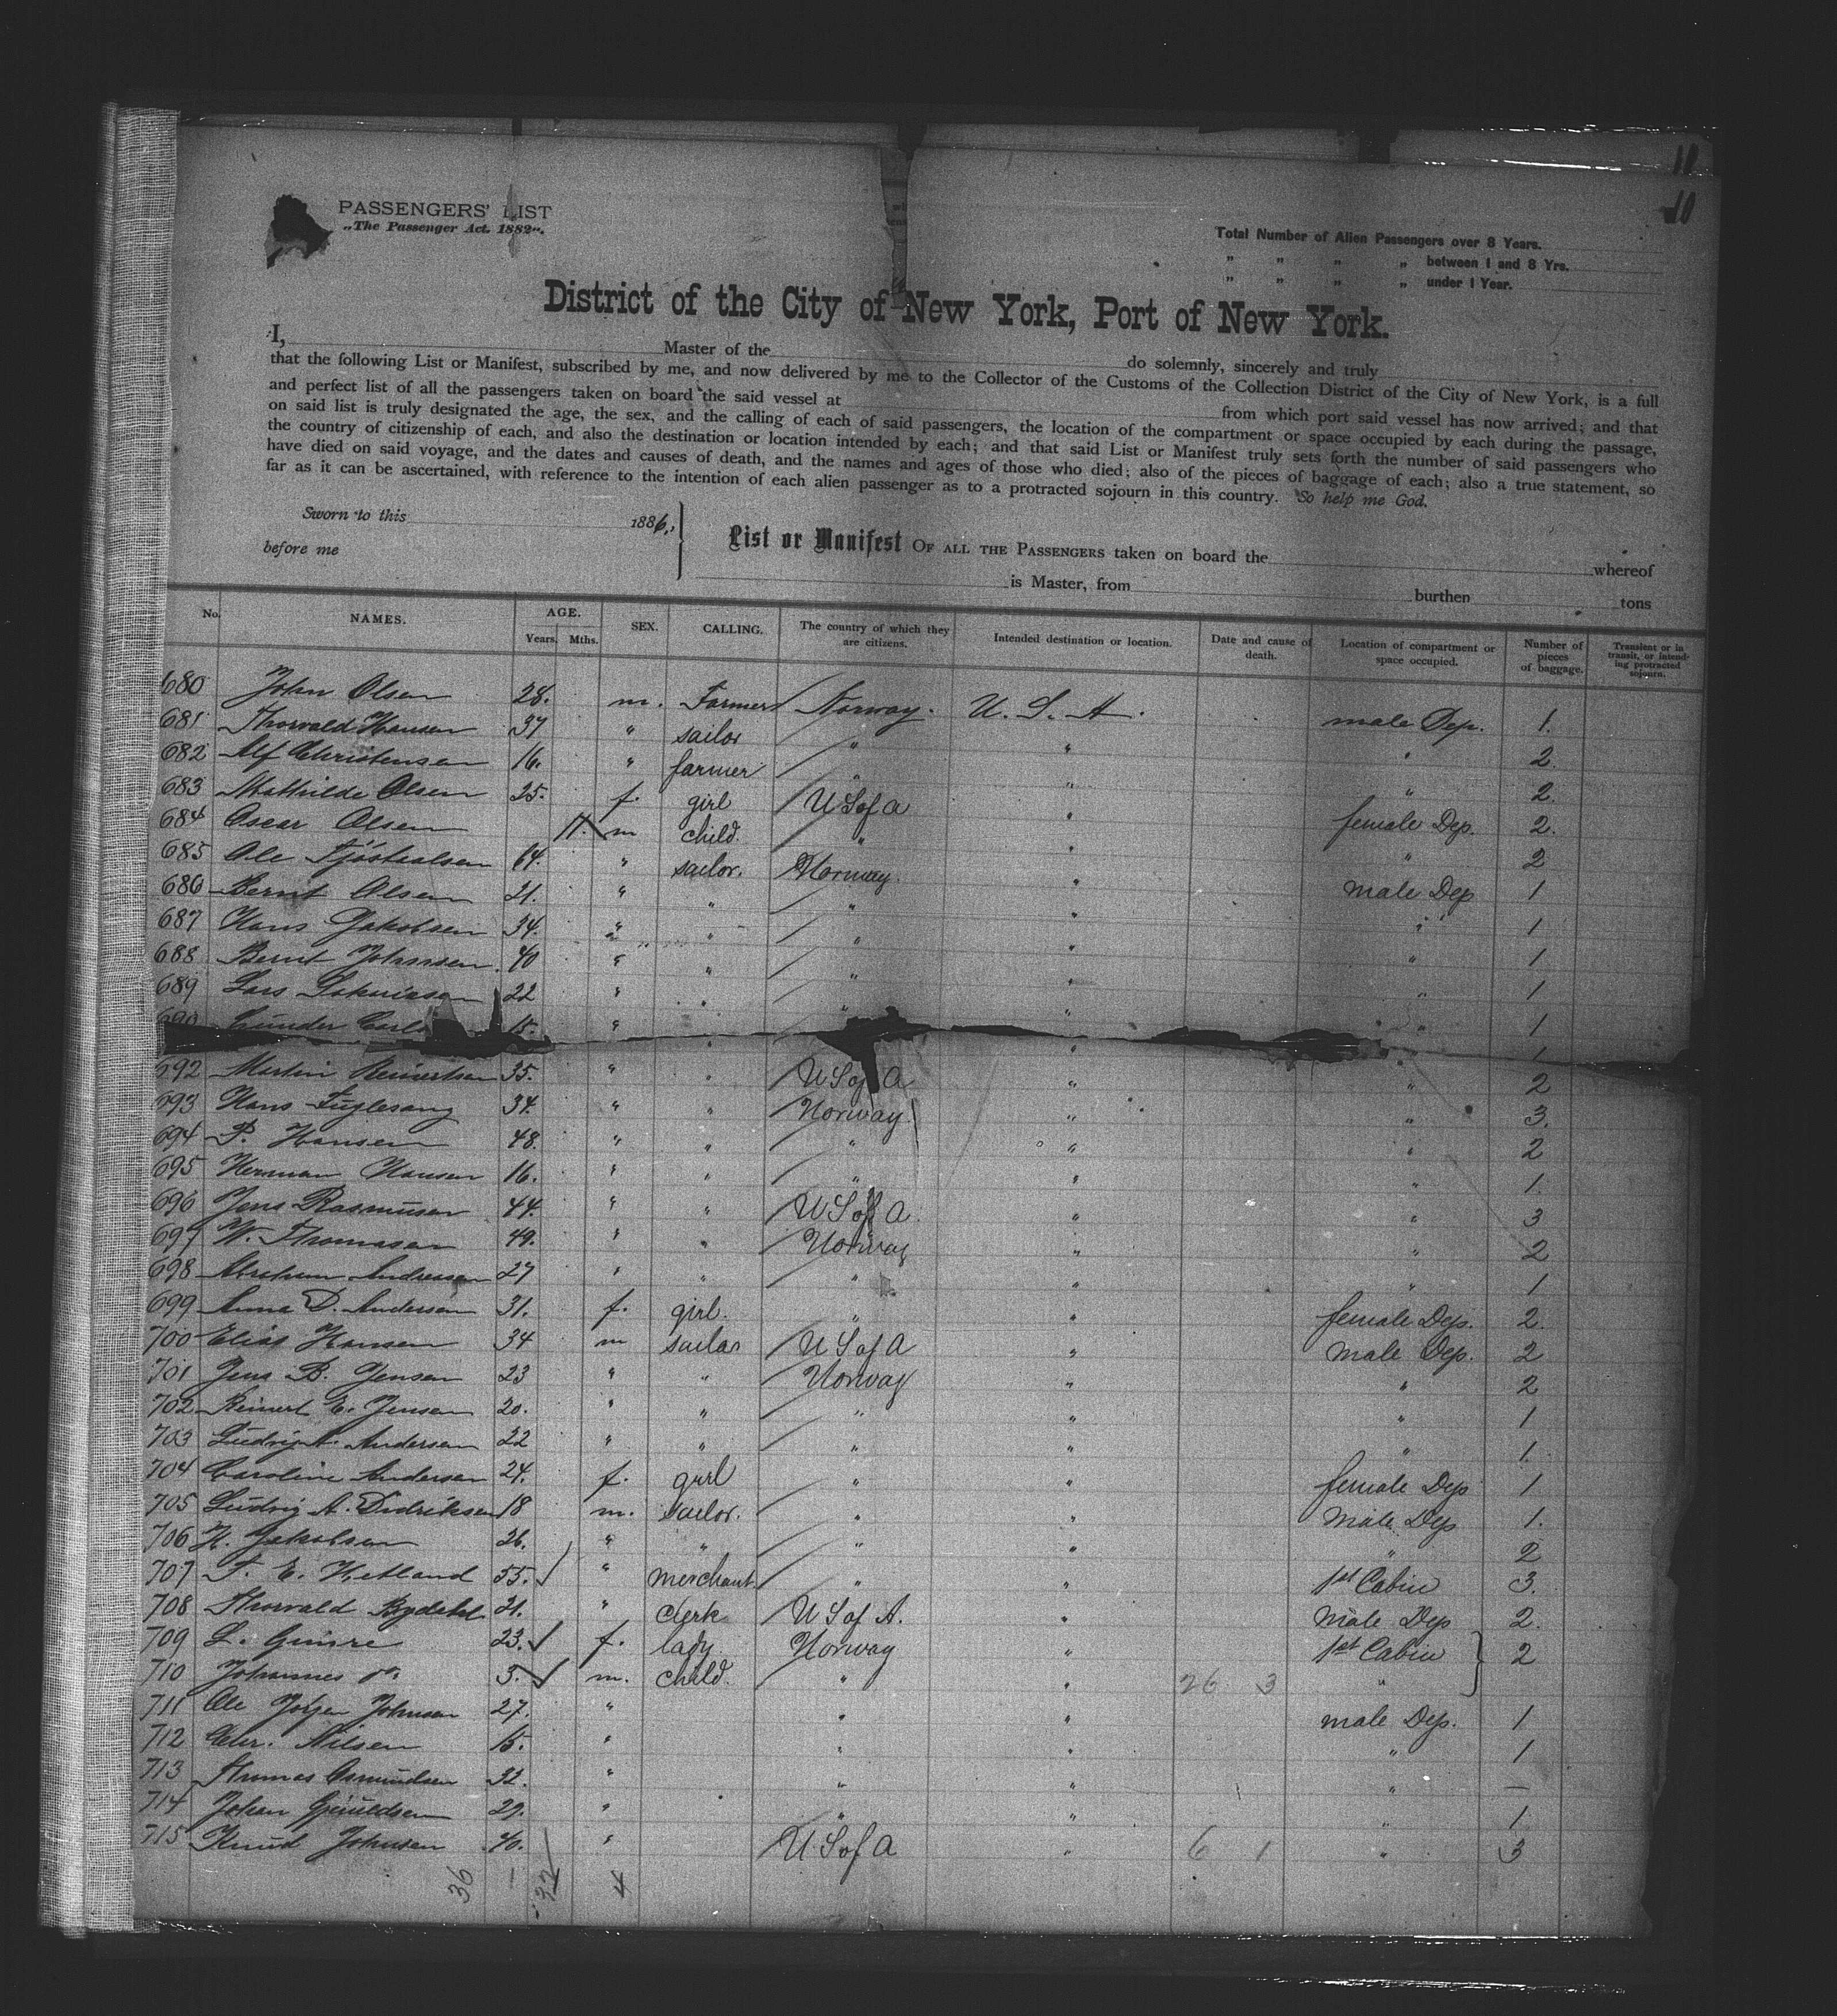 11
10
PASSENGERS' LIST
„The Passenger Act. 1882".
Total Number of Alien Passengers over 8 Years.
„ „ „ „ between 1 and 8 Yrs.
„ „ „ „ under 1 Year.
District of the City of New York, Port of New York.
I, Master of the do solemnly, sincerely and truly
that the following List or Manifest, subscribed by me, and now delivered by me to the Collector of the Customs of the Collection District of the City of New York, is a full
and perfect list of all the passengers taken on board the said vessel at from which port said vessel has now arrived; and that
on said list is truly designated the age, the sex, and the calling of each of said passengers, the location of the compartment or space occupied by each during the passage,
the country of citizenship of each, and also the destination or location intended by each; and that said List or Manifest truly sets forth the number of said passengers who
have died on said voyage, and the dates and causes of death, and the names and ages of those who died; also of the pieces of baggage of each; also a true statement, so
far as it can be ascertained, with reference to the intention of each alien passenger as to a protracted sojourn in this country. So help me God.
Sworn to this 1886.
before me
List or Manifest OF ALL THE PASSENGERS taken on board the whereof
is Master, from burthen tons
No. NAMES. AGE. Years. Mths. SEX. CALLING. The country of which they are citizens. Intended destination or location. Date and cause of death. Location of compartment or space occupied. Number of pieces of baggage. Transient or in transit, or intending protracted sojourn.
680 John Olsen 28. m. Farmer Norway. U. S. A. male Dep. 1.
681 Thorvald Hansen 37 " sailor " " " 2.
682 Alf Christensen 16. " farmer " " " 2.
683 Mathilde Olsen 25. f. girl U S of A " female Dep. 2.
684 Oscar Olsen 11. m child. " " " 2
685 Ole 64. " sailor. Norway " male Dep 1
686 Bernt Olsen 21. " " " " " 1
687 Hans Jakobsen 34. " " " " " 1
688 Bernt Johnsen. 40 " " " " " 1
689 Lars 22 " " " " " 1
690 Gunder Carl 15. "
692 Martin Reinertsen 35. " " U S of A " " 2
693 Hans Fuglesang 34. " " Norway. " " 3.
694 P. Hansen 48. " " " " " 2
695 Herman Hansen 16. " " " " " 1.
696 Jens Rasmusen 44. " " U S of A. " " 3
697 W. Thomasen 49. " " Norway " " 2
698 Abraham Andreasen 27 " " " " " 1
699 Anna D. Andersen 31. f. girl. " " female Dep. 2.
700 Elias Hansen 34 m sailor U S of A " Male Dep. 2
701 Jens B. Jensen 23 " " Norway " " 2
702 Reinert E. Jensen 20. " " " " " 1
703 Ludvig A. Andersen 22 " " " " " 1.
704 Caroline Andersen 24. f. girl " " female Dep 1
705 Ludvig A. Didriksen 18 m. sailor. " " Male Dep 1.
706 H. Jakobsen 26. " " " " " 2
707 F. E. Hetland 55. " merchant. " " 1st Cabin 3.
708 Thorvald 21. " clerk U S of A. " Male Dep 2.
709 L. 23. f. lady Norway " 1st Cabin 2
710 Johannes do 5. m. child. " " 26 3 "
711 Ole Johnsen 27. " " " male Dep. 1
712 Chr. Nilsen 15. " " " " 1
713 Thomas Osmundsen 32. " " " " —
714 Johan 29. " " " " 1
715 Knud Johnsen 40. " U S of A " 6 1 " 3
36 1 32 4